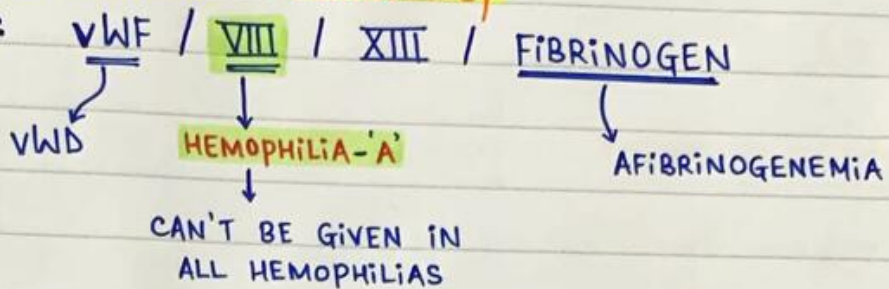 vWF / VIII / XIII / FiBRiNOGEN
VWD
HEMOPHiLiA-'A'
AFiBRiNOGENEMiA
CAN'T BE GiVEN iN
ALL HEMOPHiLiAS